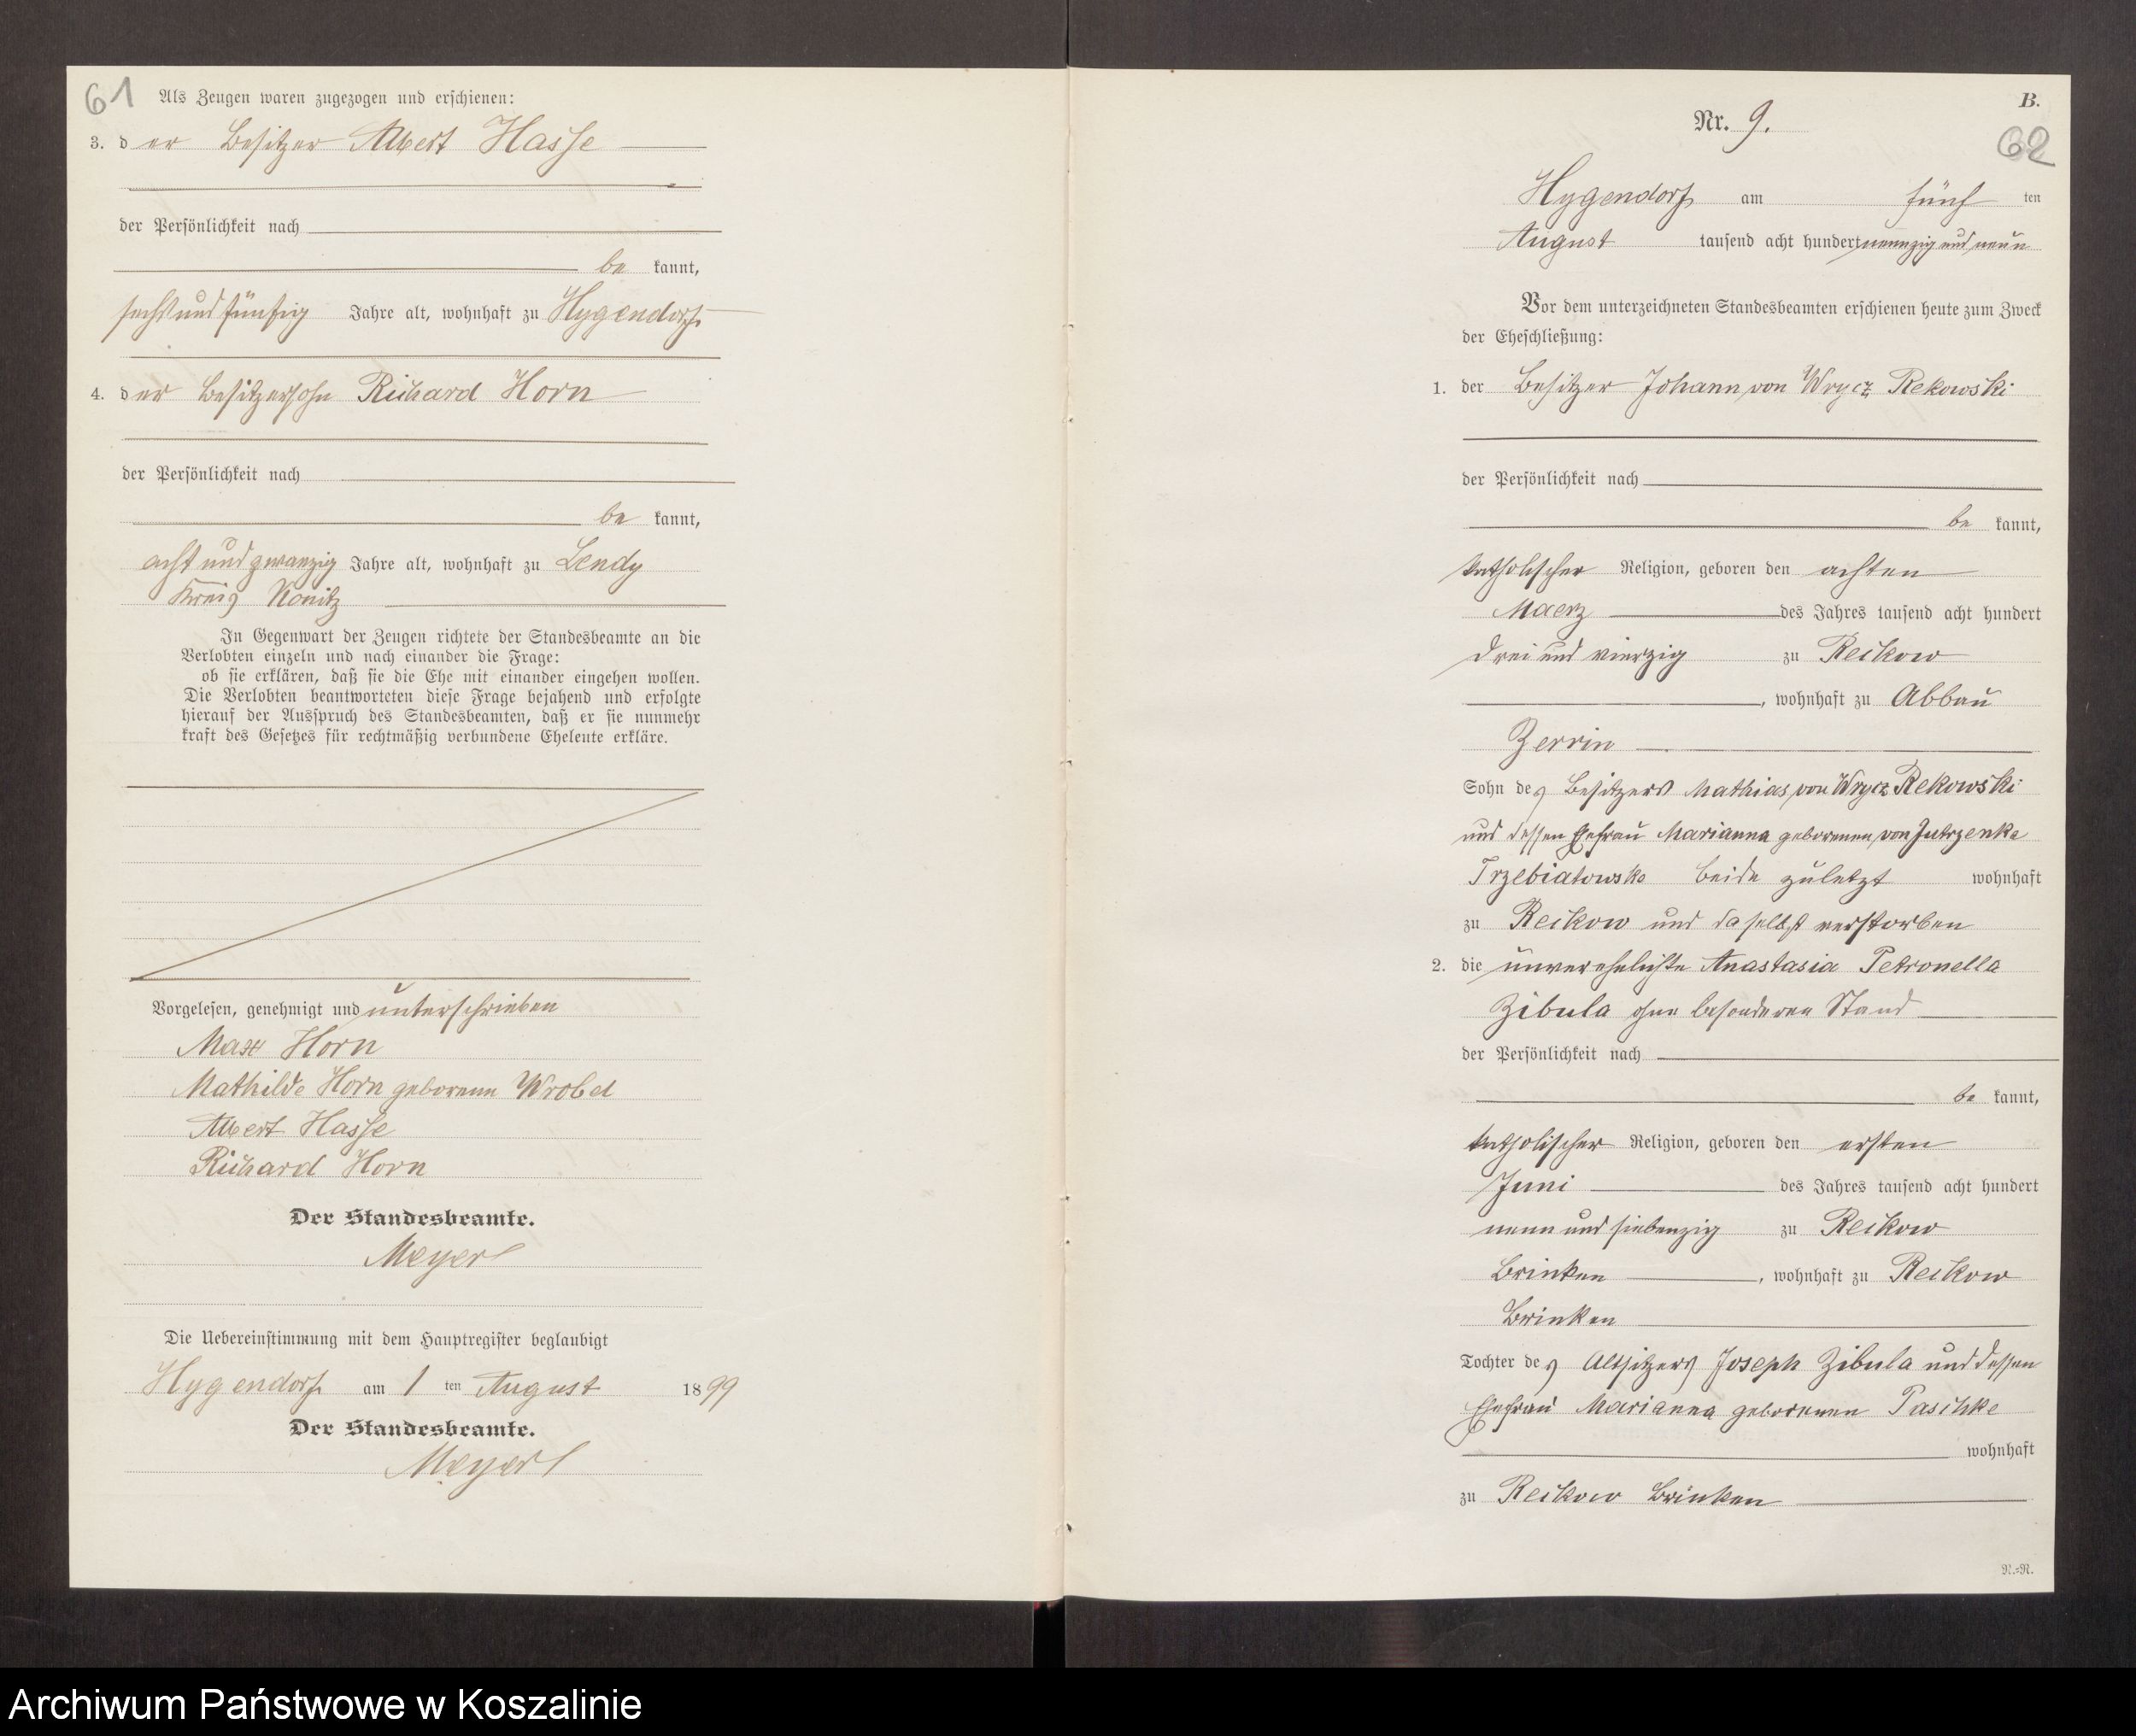 61
Als Zeugen waren zugezogen und erschienen:
3. der Besitzer Albert Hasse
der Persönlichkeit nach
be kannt,
sechs und fünfzig Jahre alt, wohnhaft zu Hygendorf
4. der Besitzersohn Richard Horn
der Persönlichkeit nach
be kannt,
acht und zwanzig Jahre alt, wohnhaft zu Lendy
Kreis Konitz
In Gegenwart der Zeugen richtete der Standesbeamte an die
Verlobten einzeln und nach einander die Frage:
ob sie erklären, daß sie die Ehe mit einander eingehen wollen.
Die Verlobten beantworteten diese Frage bejahend und erfolgte
hierauf der Ausspruch des Standesbeamten, daß er sie nunmehr
kraft des Gesetzes für rechtmäßig verbundene Eheleute erkläre.
Vorgelesen, genehmigt und unterschrieben
Max Horn
Mathilde Horn geborene Wrobel
Albert Hasse
Richard Horn
Der Standesbeamte.
Meyer
Die Uebereinstimmung mit dem Hauptregister beglaubigt
Hygendorf am 1 ten August 1899
Der Standesbeamte.
Meyer
B.
Nr. 9.
62
Hygendorf am fünf ten
August tausend acht hundert neunzig und neun
Vor dem unterzeichneten Standesbeamten erschienen heute zum Zweck
der Eheschließung:
1. der Besitzer Johann von Wrycz Rekowski
der Persönlichkeit nach
be kannt,
katholischer Religion, geboren den achten
Maerz des Jahres tausend acht hundert
drei und vierzig zu Reckow
, wohnhaft zu Abbau
Zerrin
Sohn des Besitzers Mathias von Wrycz Rekowski
und dessen Ehefrau Marianna geborenen von Jutrzenke
Trzebiatowska beide zuletzt wohnhaft
zu Reckow und daselbst verstorben
2. die unverehelichte Anastasia Petronella
Zibula ohne besonderen Stand
der Persönlichkeit nach
be kannt,
katholischer Religion, geboren den ersten
Juni des Jahres tausend acht hundert
neun und siebenzig zu Reckow
Brinken , wohnhaft zu Reckow
Brinken
Tochter des Altsitzers Joseph Zibula und dessen
Ehefrau Marianna geborenen Paschke
wohnhaft
zu Reckow Brinken
N.=N.
Archiwum Państwowe w Koszalinie